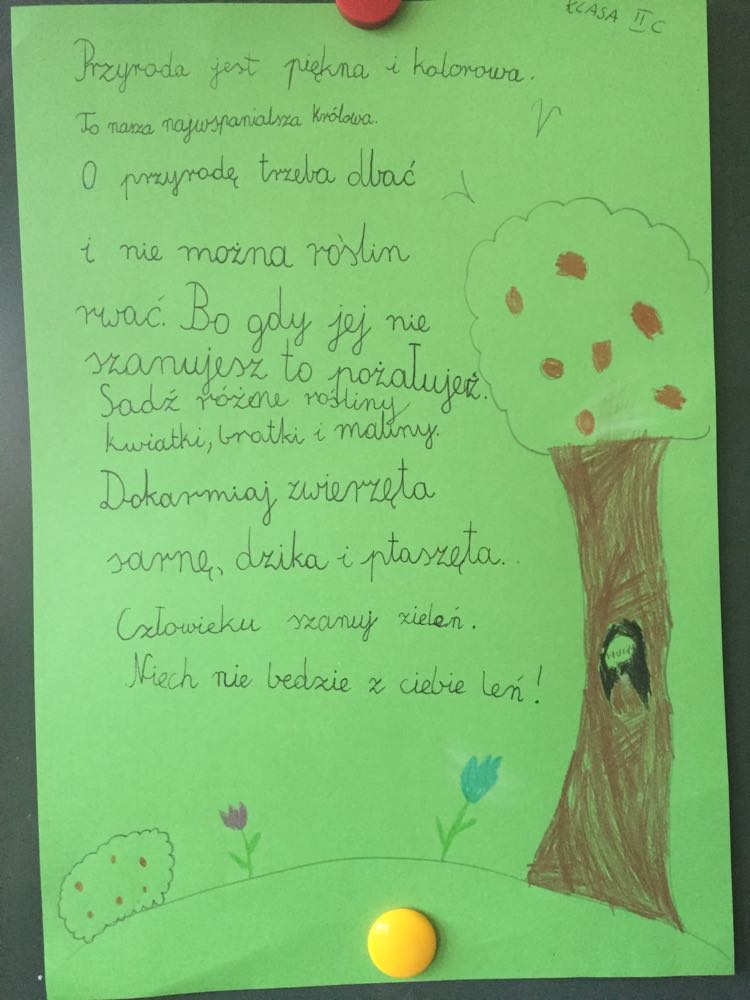 KLASA II C
Przyroda jest piękna i kolorowa.
To nasza najwspanialsza królowa.
O przyrodę trzeba dbać
i nie można roślin
rwać. Bo gdy jej nie
szanujesz to pożałujesz.
Sadź różene rośliny
kwiatki, bratki i maliny.
Dokarmiaj zwierzęta
sarnę, dzika i ptaszęta.
Człowieku szanuj zieleń.
Niech nie bedzie z ciebie leń!